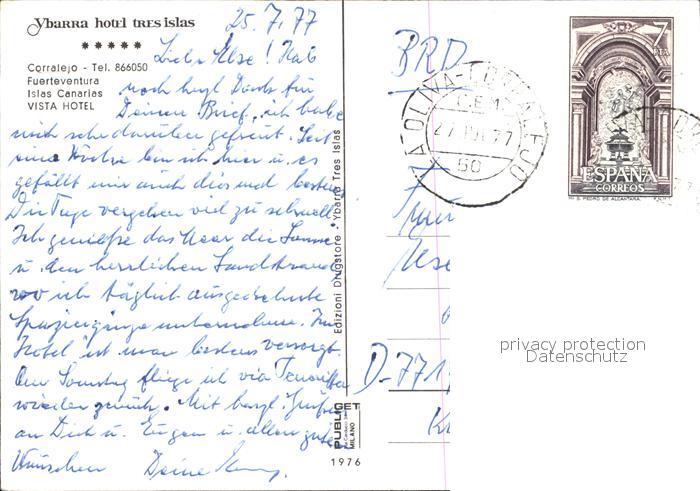 Ybarra hotel tres islas
*****
Corralejo - Tel. 866050
Fuerteventura
Islas Canarias
VISTA HOTEL
25.7.77
Liebe Ilse! Hab
noch herzl Dank für
Deinen Brief, ich habe
mich sehr darüber gefreut. Seit
eine Woche bin ich hier u. es
gefällt mir auch diesmal bestens
Die Tage vergehen viel zu schnell.
Ich genieße das Meer die Sonne
u. den herrlichen Sandstrand
wo ich täglich ausgedehnte
Spaziergänge unternehme. Im
Hotel ist man bestens versorgt.
Am Samstag fliege ich via Teneriffa
wieder zurück. Mit herzl. Grüßen
an Dich u. Eugen u. allen guten
Wünschen Deine
Edizioni Drugstore - Ybarra Tres Islas
PUBLIGET
MILANO
1976
BRD
LA OLIVA-CORRALEJO
27 JUL 77
60
7
PTA
ESPAÑA
CORREOS
Mº S. PEDRO DE ALCANTARA.
F.N.M.T.
Ilse
D-771
privacy protection
Datenschutz